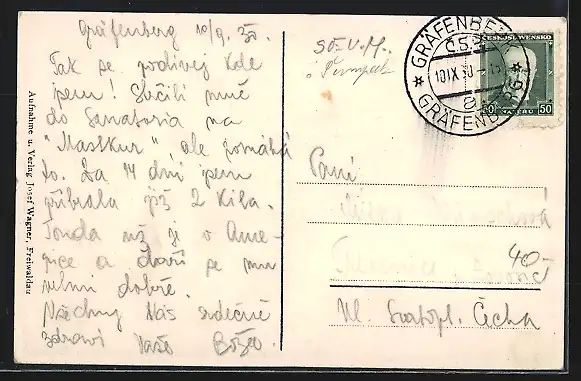 Gräfenberg 10/9. 30.
Tak se podívej kde
jsem! Strčili mně
do Sanatoria na
"Mastkur" ale pomáhá
to. Za 14 dní jsem
přibrala již 2 kila.
Tonda už je v Ame-
rice a daří se mu
velmi dobře.
Všechny Vás srdečně
zdraví Vaše Božo.
Aufnahme u. Verlag Josef Wagner, Freiwaldau
GRÄFENBERG
Č.S.R.
10 IX 30
GRÄFENBERG
ČESKOSLOVENSKO
50 HALÉŘŮ 50
Paní
40-
Ul. Svatopl. Čecha